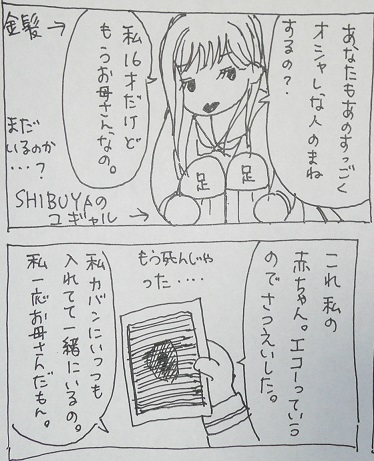 あなたもあのすっごく
オシャレな人のまね
するの？
足
足
私16才だけど
もうお母さんなの。
金髪→
まだ
いるのか
…？
SHIBUYAの
コギャル →
これ私の
赤ちゃん。エコーっていう
のでさつえいした。
もう死んじゃ
った・・・・
私カバンにいっつも
入れてて一緒にいるの。
私一応お母さんだもん。